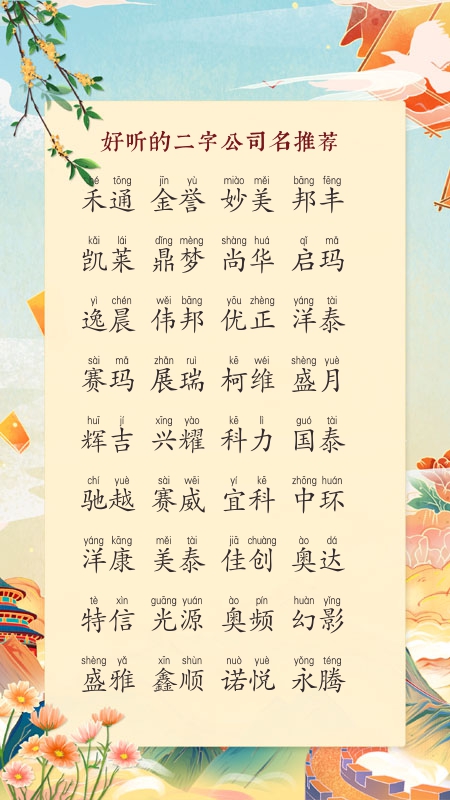 好听的二字公司名推荐
hé tōng jīn yù miào měi bāng fēng
禾通 金誉 妙美 邦丰
kǎi lái dǐng mèng shàng huá qǐ mǎ
凯莱 鼎梦 尚华 启玛
yì chén wěi bāng yōu zhèng yáng tài
逸晨 伟邦 优正 洋泰
sài mǎ zhǎn ruì kē wéi shèng yuè
赛玛 展瑞 柯维 盛月
huī jí xīng yào kē lì guó tài
辉吉 兴耀 科力 国泰
chí yuè sài wēi yí kē zhōng huán
驰越 赛威 宜科 中环
yáng kāng měi tài jiā chuàng ào dá
洋康 美泰 佳创 奥达
tè xìn guāng yuán ào pín huàn yǐng
特信 光源 奥频 幻影
shèng yǎ xīn shùn nuò yuè yǒng téng
盛雅 鑫顺 诺悦 永腾